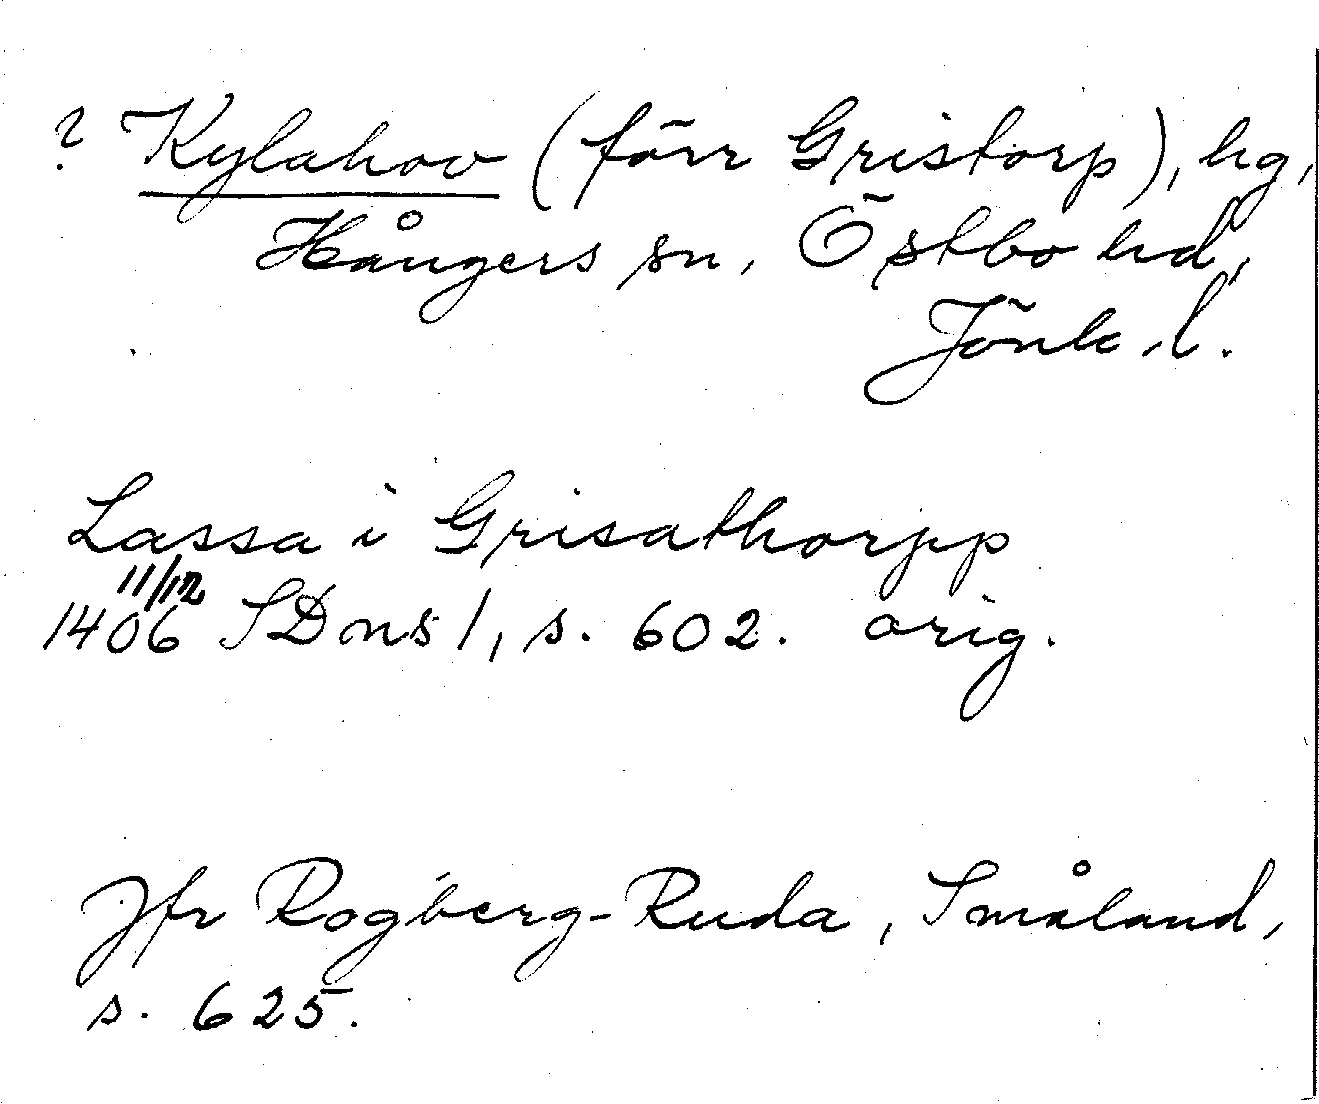 ? Kylahov (förr Gristorp), hg,
Hångers sn, Östbo hd,
Jönk. l.
Lassa i Grisathorpp
11/12
1406 SDns 1, s. 602. orig.
Jfr Rogberg-Ruda, Småland,
s. 625.